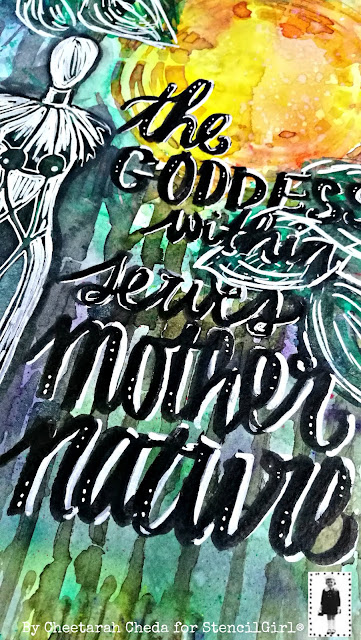 the
GODDESS
within
serves
mother
nature
By Cheetarah Cheda for StencilGirl®